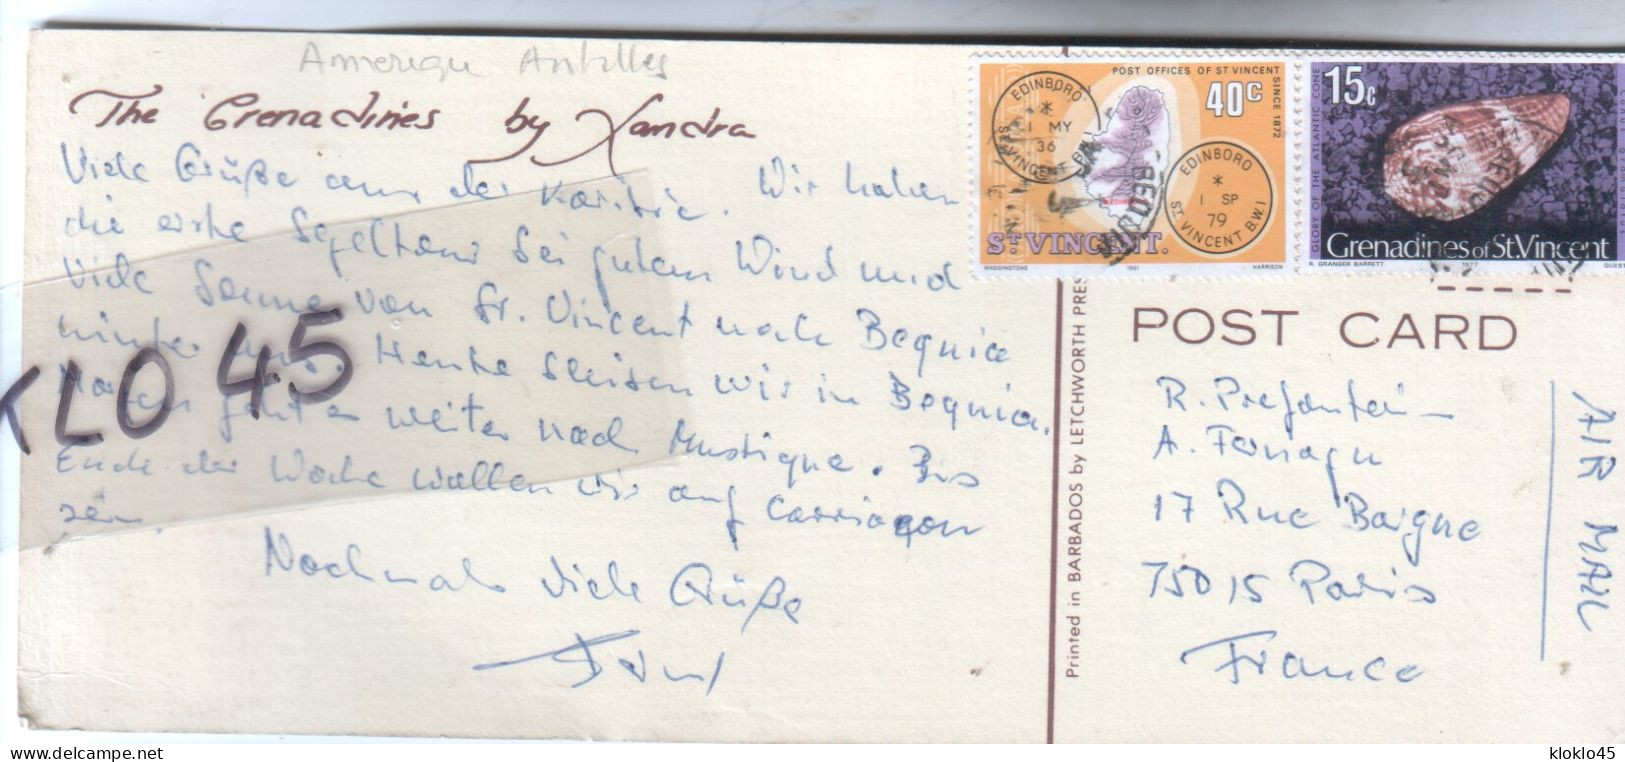 Amerique Antilles
The Grenadines by Xandra
Viele Grüße aus der Karibik. Wir haben
die erste Segeltour bei gutem Wind und
viele Sonne von St. Vincent nach Bequia
hinter uns. Heute bleiben wir in Bequia.
Morgen geht es weiter nach Mustique. Bis
Ende der Woche wollen wir auf Carriacou
sein.
Nochmals viele Grüße
KLO 45
POST OFFICES OF ST VINCENT
SINCE 1872
40c
EDINBORO
1 MY
36
ST VINCENT B.W.I
EDINBORO
1 SP
79
ST VINCENT B.W.I
ST. VINCENT.
WADDINGTONS 1981 HARRISON
15c
GLORY OF THE ATLANTIC CONE
Grenadines of St.Vincent
R. GRANGER BARRETT 1977 QUEST
POST CARD
Printed in BARBADOS by LETCHWORTH PRES
R.
A.
17 Rue Bargue
75015 Paris
France
AIR MAIL
kloklo45
delcampe.net